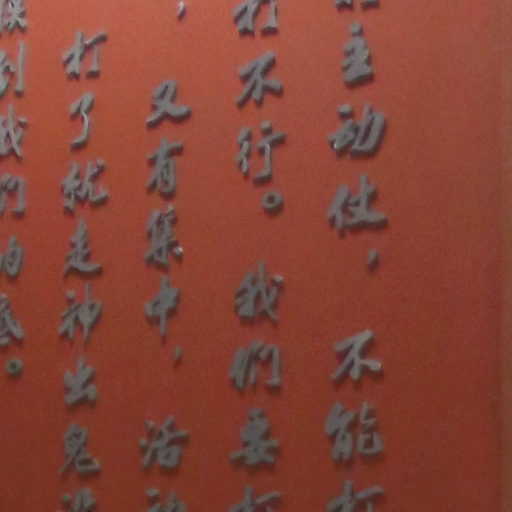 主动仗，不能打
打不行。我们要打
，又有集中，活动
打了就走，神出鬼没
摸到我们的底。